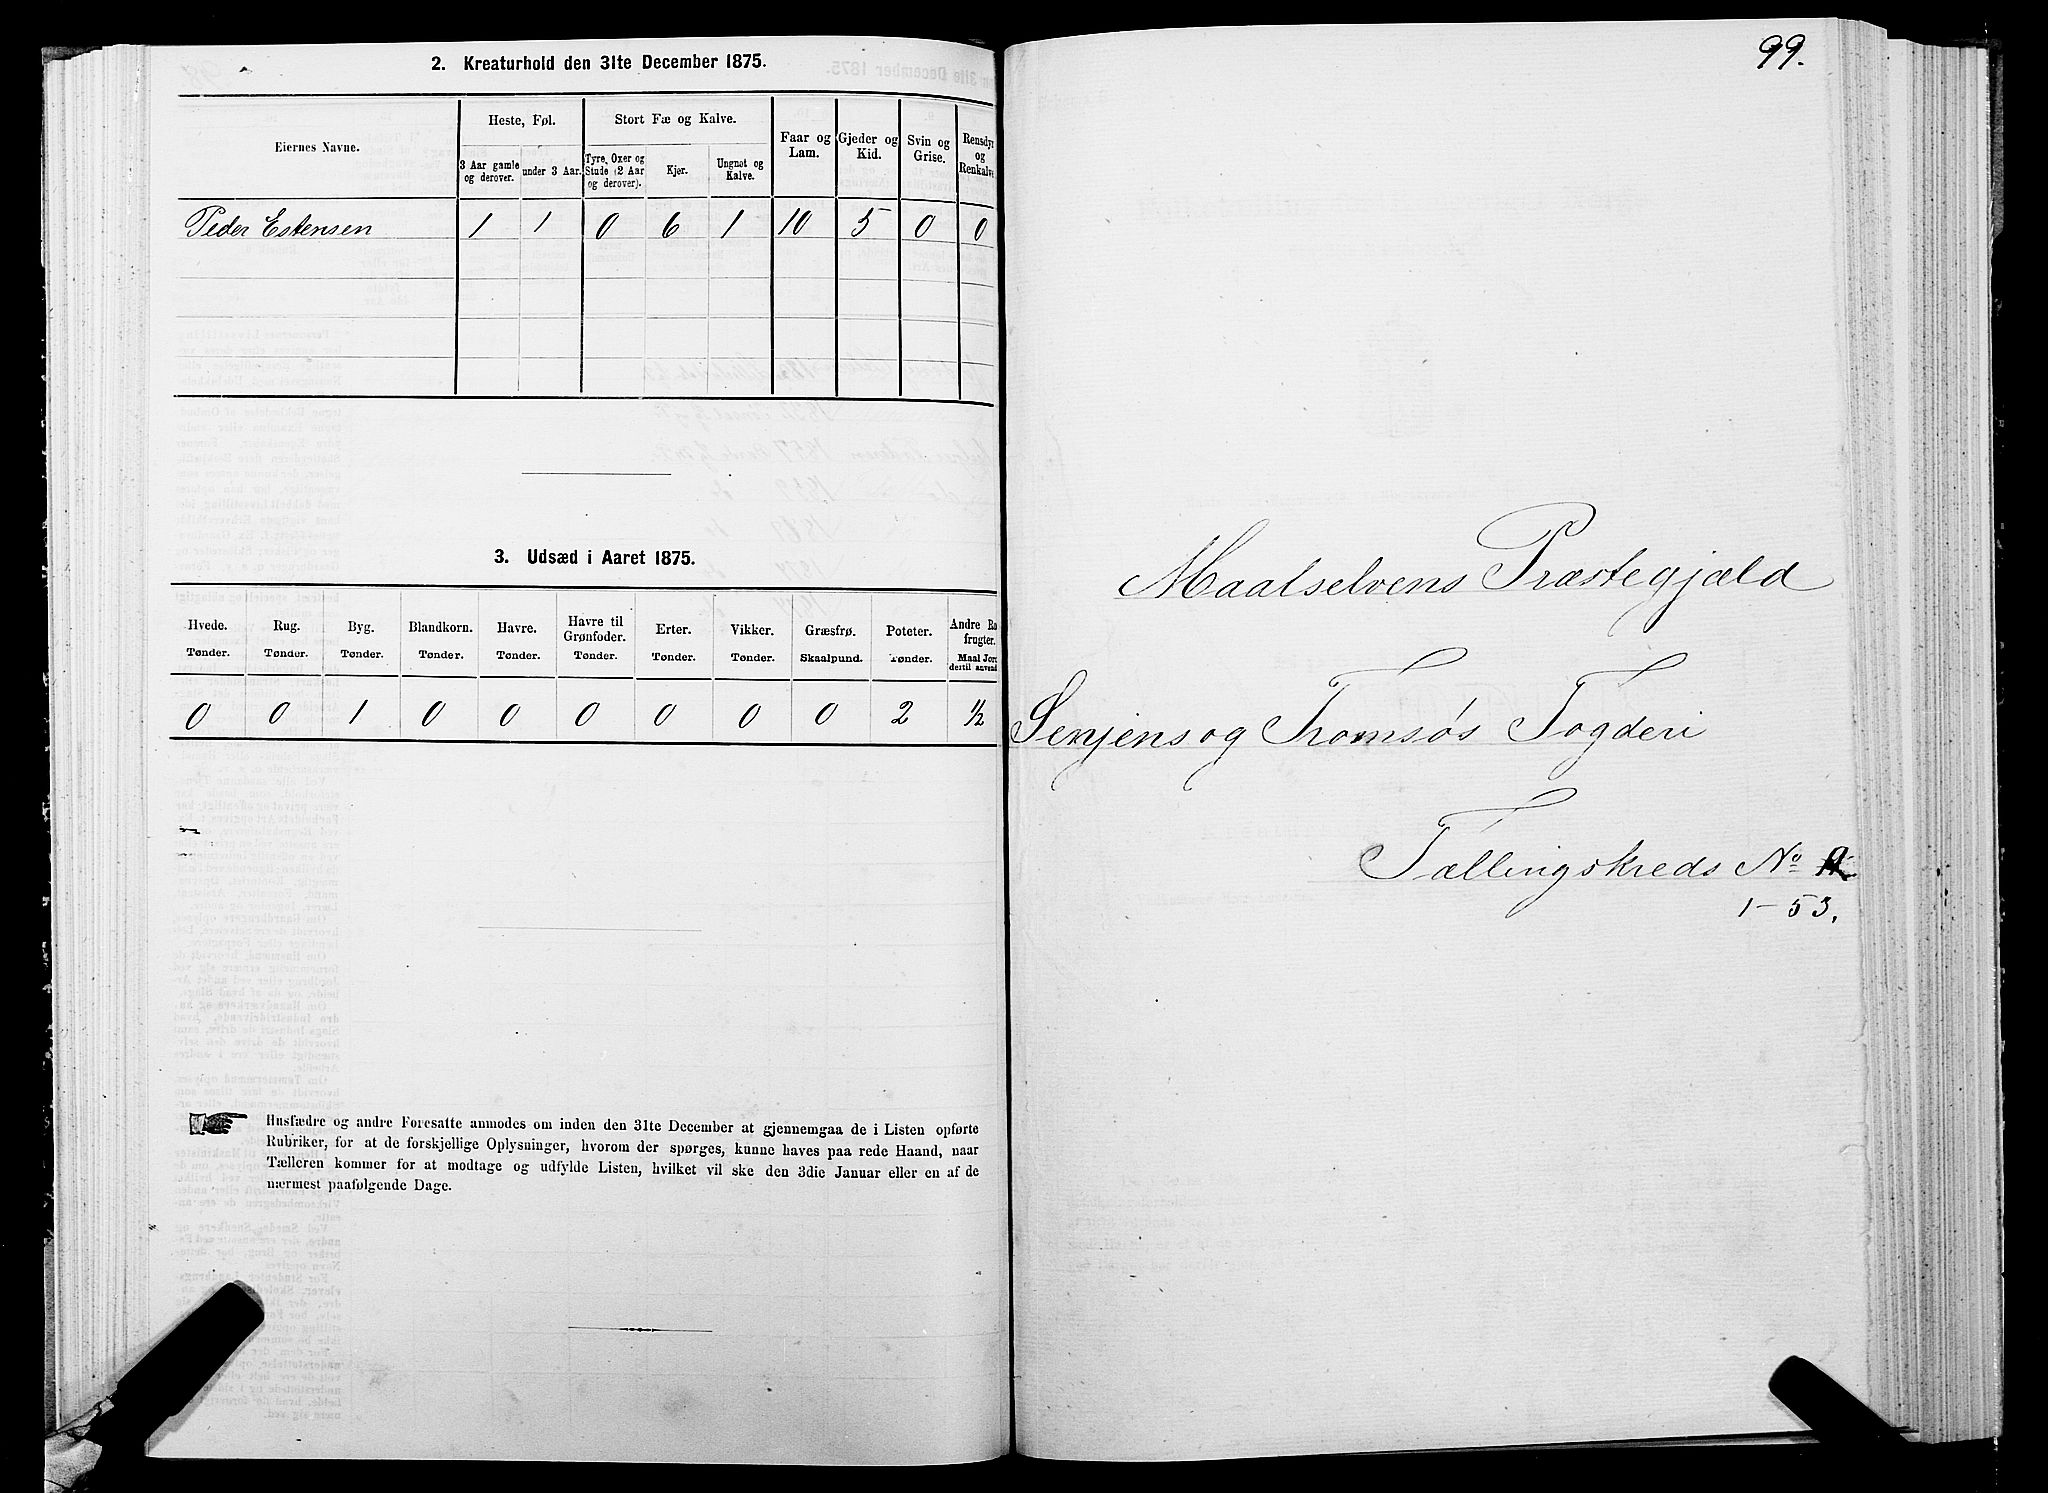 2. Kreaturhold den 31te December 1875.
Eiernes Navne.
Heste, Føl.
Stort Fæ og Kalve.
3 Aar gamle og derover.
under 3 Aar.
Tyre, Oxer og Stude (2 Aar og derover).
Kjer.
Ungnøt og Kalve.
Faar og Lam.
Gjeder og Kid.
Svin og Grise.
Rensdyr og Renkalve
Peder Estensen 1 1 0 6 1 10 5 0 0
3. Udsæd i Aaret 1875.
Hvede. Rug. Byg. Blandkorn. Havre. Havre til Grønfoder. Erter. Vikker. Græsfrø. Poteter. Andre Ro frugter.
Tønder. Tønder. Tønder. Tønder. Tønder. Tønder. Tønder. Tønder. Skaalpund. Tønder. Maal Jord dertil anvend
0 0 1 0 0 0 0 0 0 2 1/2
Husfædre og andre Foresatte anmodes om inden den 31te December at gjennemgaa de i Listen opførte
Rubriker, for at de forskjellige Oplysninger, hvorom der spørges, kunne haves paa rede Haand, naar
Tælleren kommer for at modtage og udfylde Listen, hvilket vil ske den 3die Januar eller en af de
nærmest paafølgende Dage.
99.
Maalselvens Præstegjæld
Senjens og Tromsøs Fogderi
Tællingskreds No
1-53.